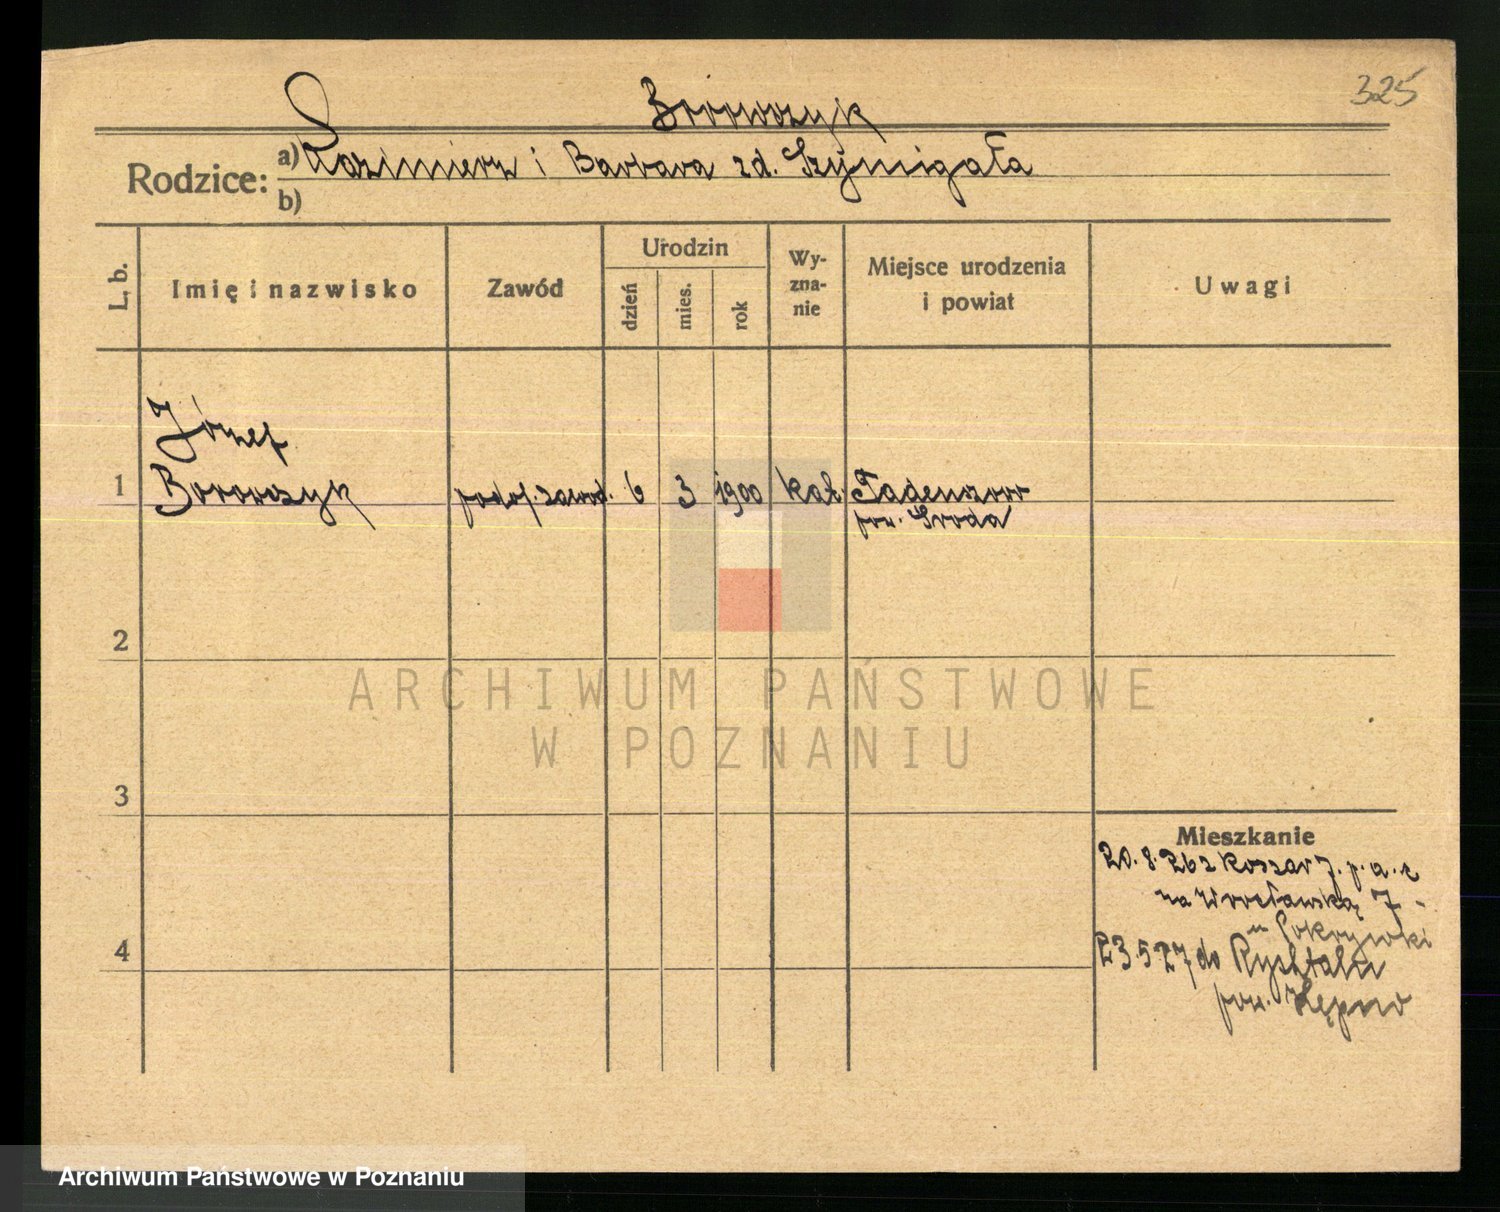 325
Borowczyk
Rodzice: a) Kazimierz i Barbara zd. Szymigała
b)
L. b.
Imię i nazwisko
Zawód
Urodzin
dzień
mies.
rok
Wy-
zna-
nie
Miejsce urodzenia
i powiat
Uwagi
Józef
1 Borowczyk podof. zawod. 6 3 1900 kat.
pow. Środa
2
3
4
Mieszkanie
20.8.26 z koszar 7. p. a. c
na Wrocławską 7
23.5.27 do Rychtalu
pow. Kępno
ARCHIWUM PAŃSTWOWE
W POZNANIU
Archiwum Państwowe w Poznaniu